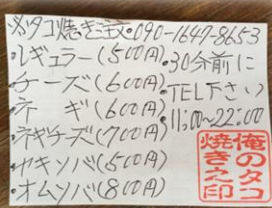 タコ焼き注.090-1647-8653
・レギュラー(500円)
・チーズ(600円)
・ネギ(600円)
・ネギチーズ(700円)
・ヤキソバ(500円)
・オムソバ(800円)
・30分前に
TEL下さい
11:00~22:00
俺のタコ
焼き之印